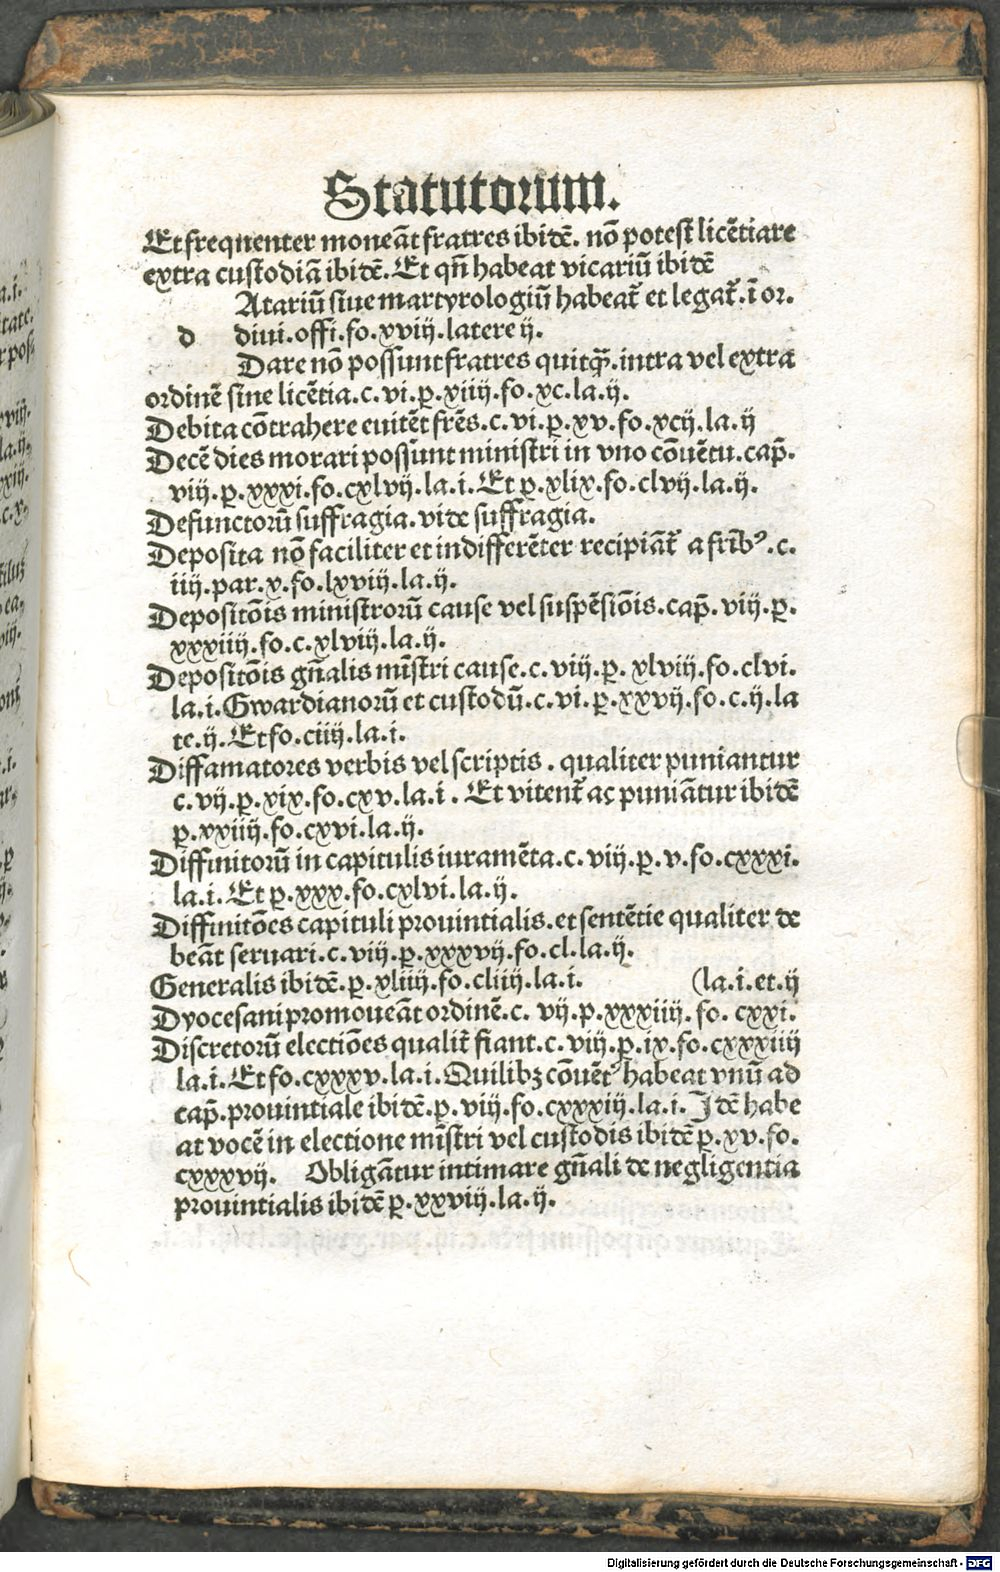 Statutorum.
Et frequenter moneāt fratres ibidē. nō potest licētiare
extra custodiā ibidē. Et qñ habeat vicariū ibidē
Atariū siue martyrologiū habeat̄ et legat̄. ī or.
d diui. offi. fo. xviij. latere ij.
Dare nō possunt fratres quitq̄ȝ. intra vel extra
ordinē sine licētia. c. vi. p̲. xiiij. fo. xc. la. ij.
Debita cōtrahere euitēt frēs. c. vi. p̲. xv. fo. xcij. la. ij
Decē dies morari possunt ministri in vno cōuētu. cap̄.
viij. p̲. xxxi. fo. cxlvij. la. i. Et p̲. xlix. fo. clvij. la. ij.
Defunctorū suffragia. vide suffragia.
Deposita nō faciliter et indifferēter recipiāt̄ a frībꝰ. c.
iiij. par. x. fo. lxviij. la. ij.
Depositōis ministrorū cause vel suspēsiōis. cap̄. viij. p̲.
xxxiiij. fo. c. xlviij. la. ij.
Depositōis gn̄alis mīstri cause. c. viij. p̲. xlviij. fo. clvi.
la. i. Gwardianorū et custodū. c. vi. p̲. xxvij. fo. c. ij. la
te. ij. Et fo. ciiij. la. i.
Diffamatores verbis vel scriptis. qualiter puniantur
c. vij. p̲. xix. fo. cxv. la. i. Et vitent̄ ac puniātur ibidē
p̲. xxiiij. fo. cxvi. la. ij.
Diffinitorū in capitulis iuramēta. c. viij. p̲. v. fo. cxxxi.
la. i. Et p̲. xxx. fo. cxlvi. la. ij.
Diffinitōes capituli prouintialis. et sentētie qualiter de
beāt seruari. c. viij. p̲. xxxvij. fo. cl. la. ij.
Generalis ibidē. p̲. xliiij. fo. cliiij. la. i. (la. i. et. ij
Dyocesani promoueāt ordinē. c. vij. p. xxxiiij. fo. cxxi.
Discretorū electiōes qualit̄ fiant. c. viij. p̲. ix. fo. cxxxiiij
la. i. Et fo. cxxxv. la. i. Quilibȝ cōuētꝰ habeat vnū ad
cap̄. prouintiale ibidē. p̲. viij. fo. cxxxiij. la. i. Idē habe
at vocē in electione mīstri vel custodis ibidē p̲. xv. fo.
cxxxvij. Obligātur intimare gn̄ali de negligentia
prouintialis ibidē p̲. xxviij. la. ij.
Digitalisierung gefördert durch die Deutsche Forschungsgemeinschaft - DFG